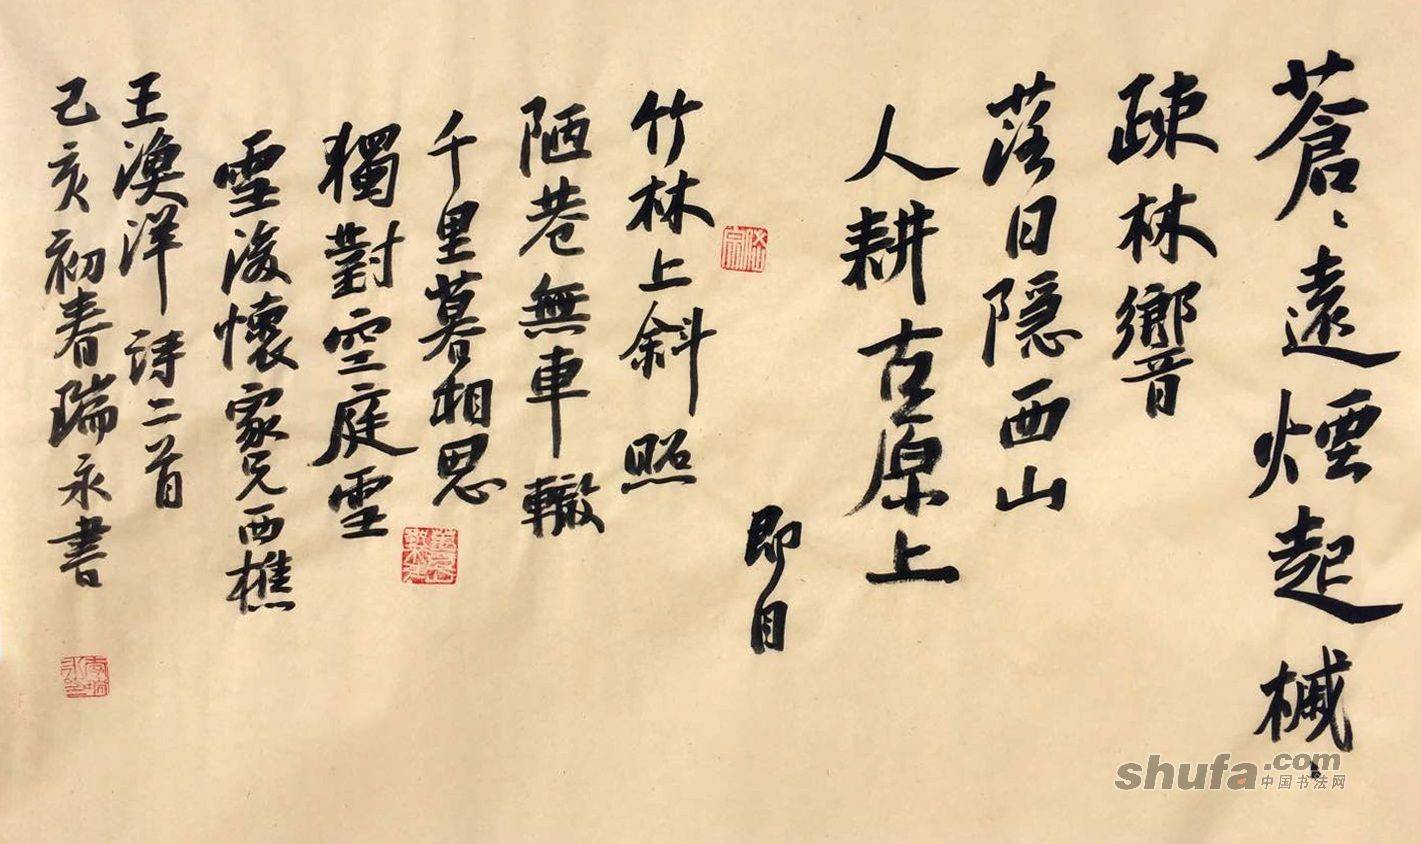 蒼〻遠煙起槭〻
疎林響
落日隐西山
人耕古原上
即目
竹林上斜照
陋巷無車轍
千里暮相思
獨對空庭雪
雪後懷家兄西樵
王漁洋詩二首
己亥初春瑞永書
shufa.com
中国书法网